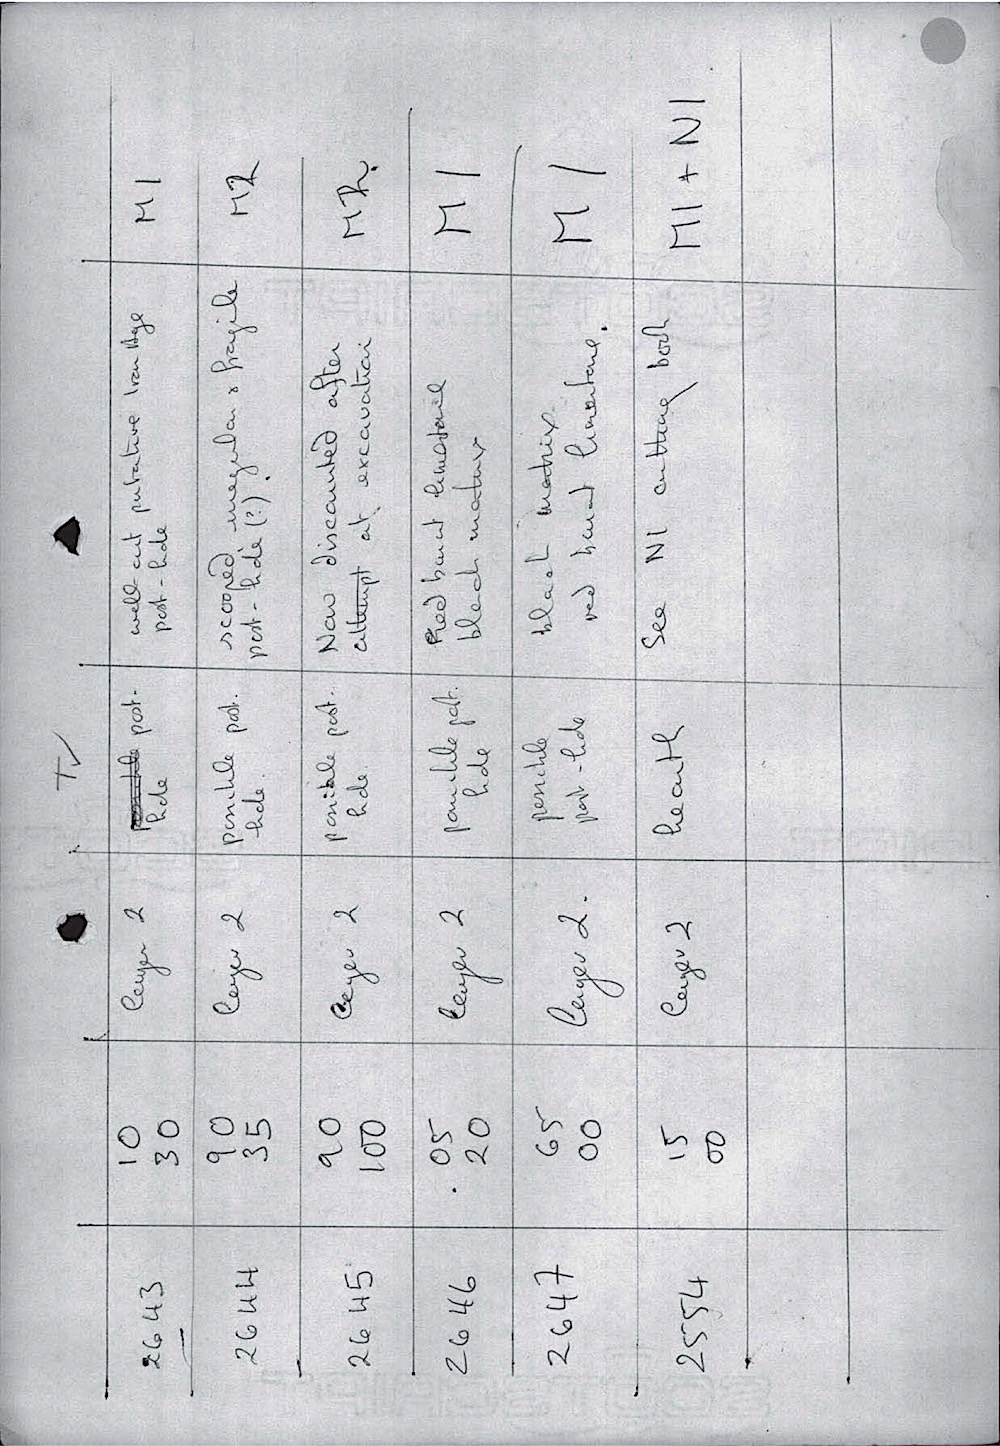 T
2643
10
30
Layer 2
post-
hole
well-cut putative Iron Age
post-hole
M1
2644
90
35
Layer 2
possible post.
hole.
scooped irregular & fragile
post-hole (?).
M2
2645
90
100
Layer 2
possible post.
hole.
Now discounted after
attempt at excavation
M2.
2646
. 05
20
Layer 2
possible post.
hole
Red burnt limestone
black matrix
M1
2647
65
00
Layer 2.
possible
post-hole
black matrix.
red burnt limestone.
M1
2554
15
00
Layer 2
hearth
See N1 cutting book
M1 + N1